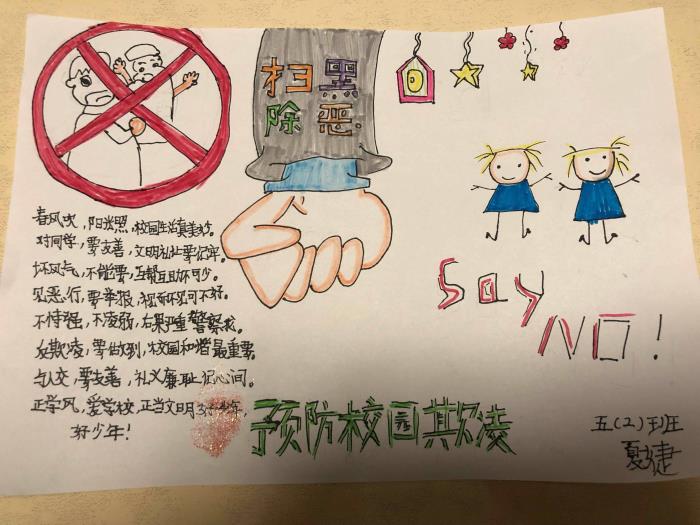 扫黑
除恶.
春风吹,阳光照,校园生活真美妙。
对同学,要友善,文明礼让要记牢。
坏风气,不能要,互帮互助不可少。
见恶行,要举报,视而不见可不好。
不恃强,不凌弱,后果严重警察找。
反欺凌,要做到,校园和谐最重要。
与人交,要友善,礼义廉耻记心间。
正学风,爱学校,正当文明好少年,
好少年!
Say
NO!
预防校园欺凌
五(2)班
夏婕